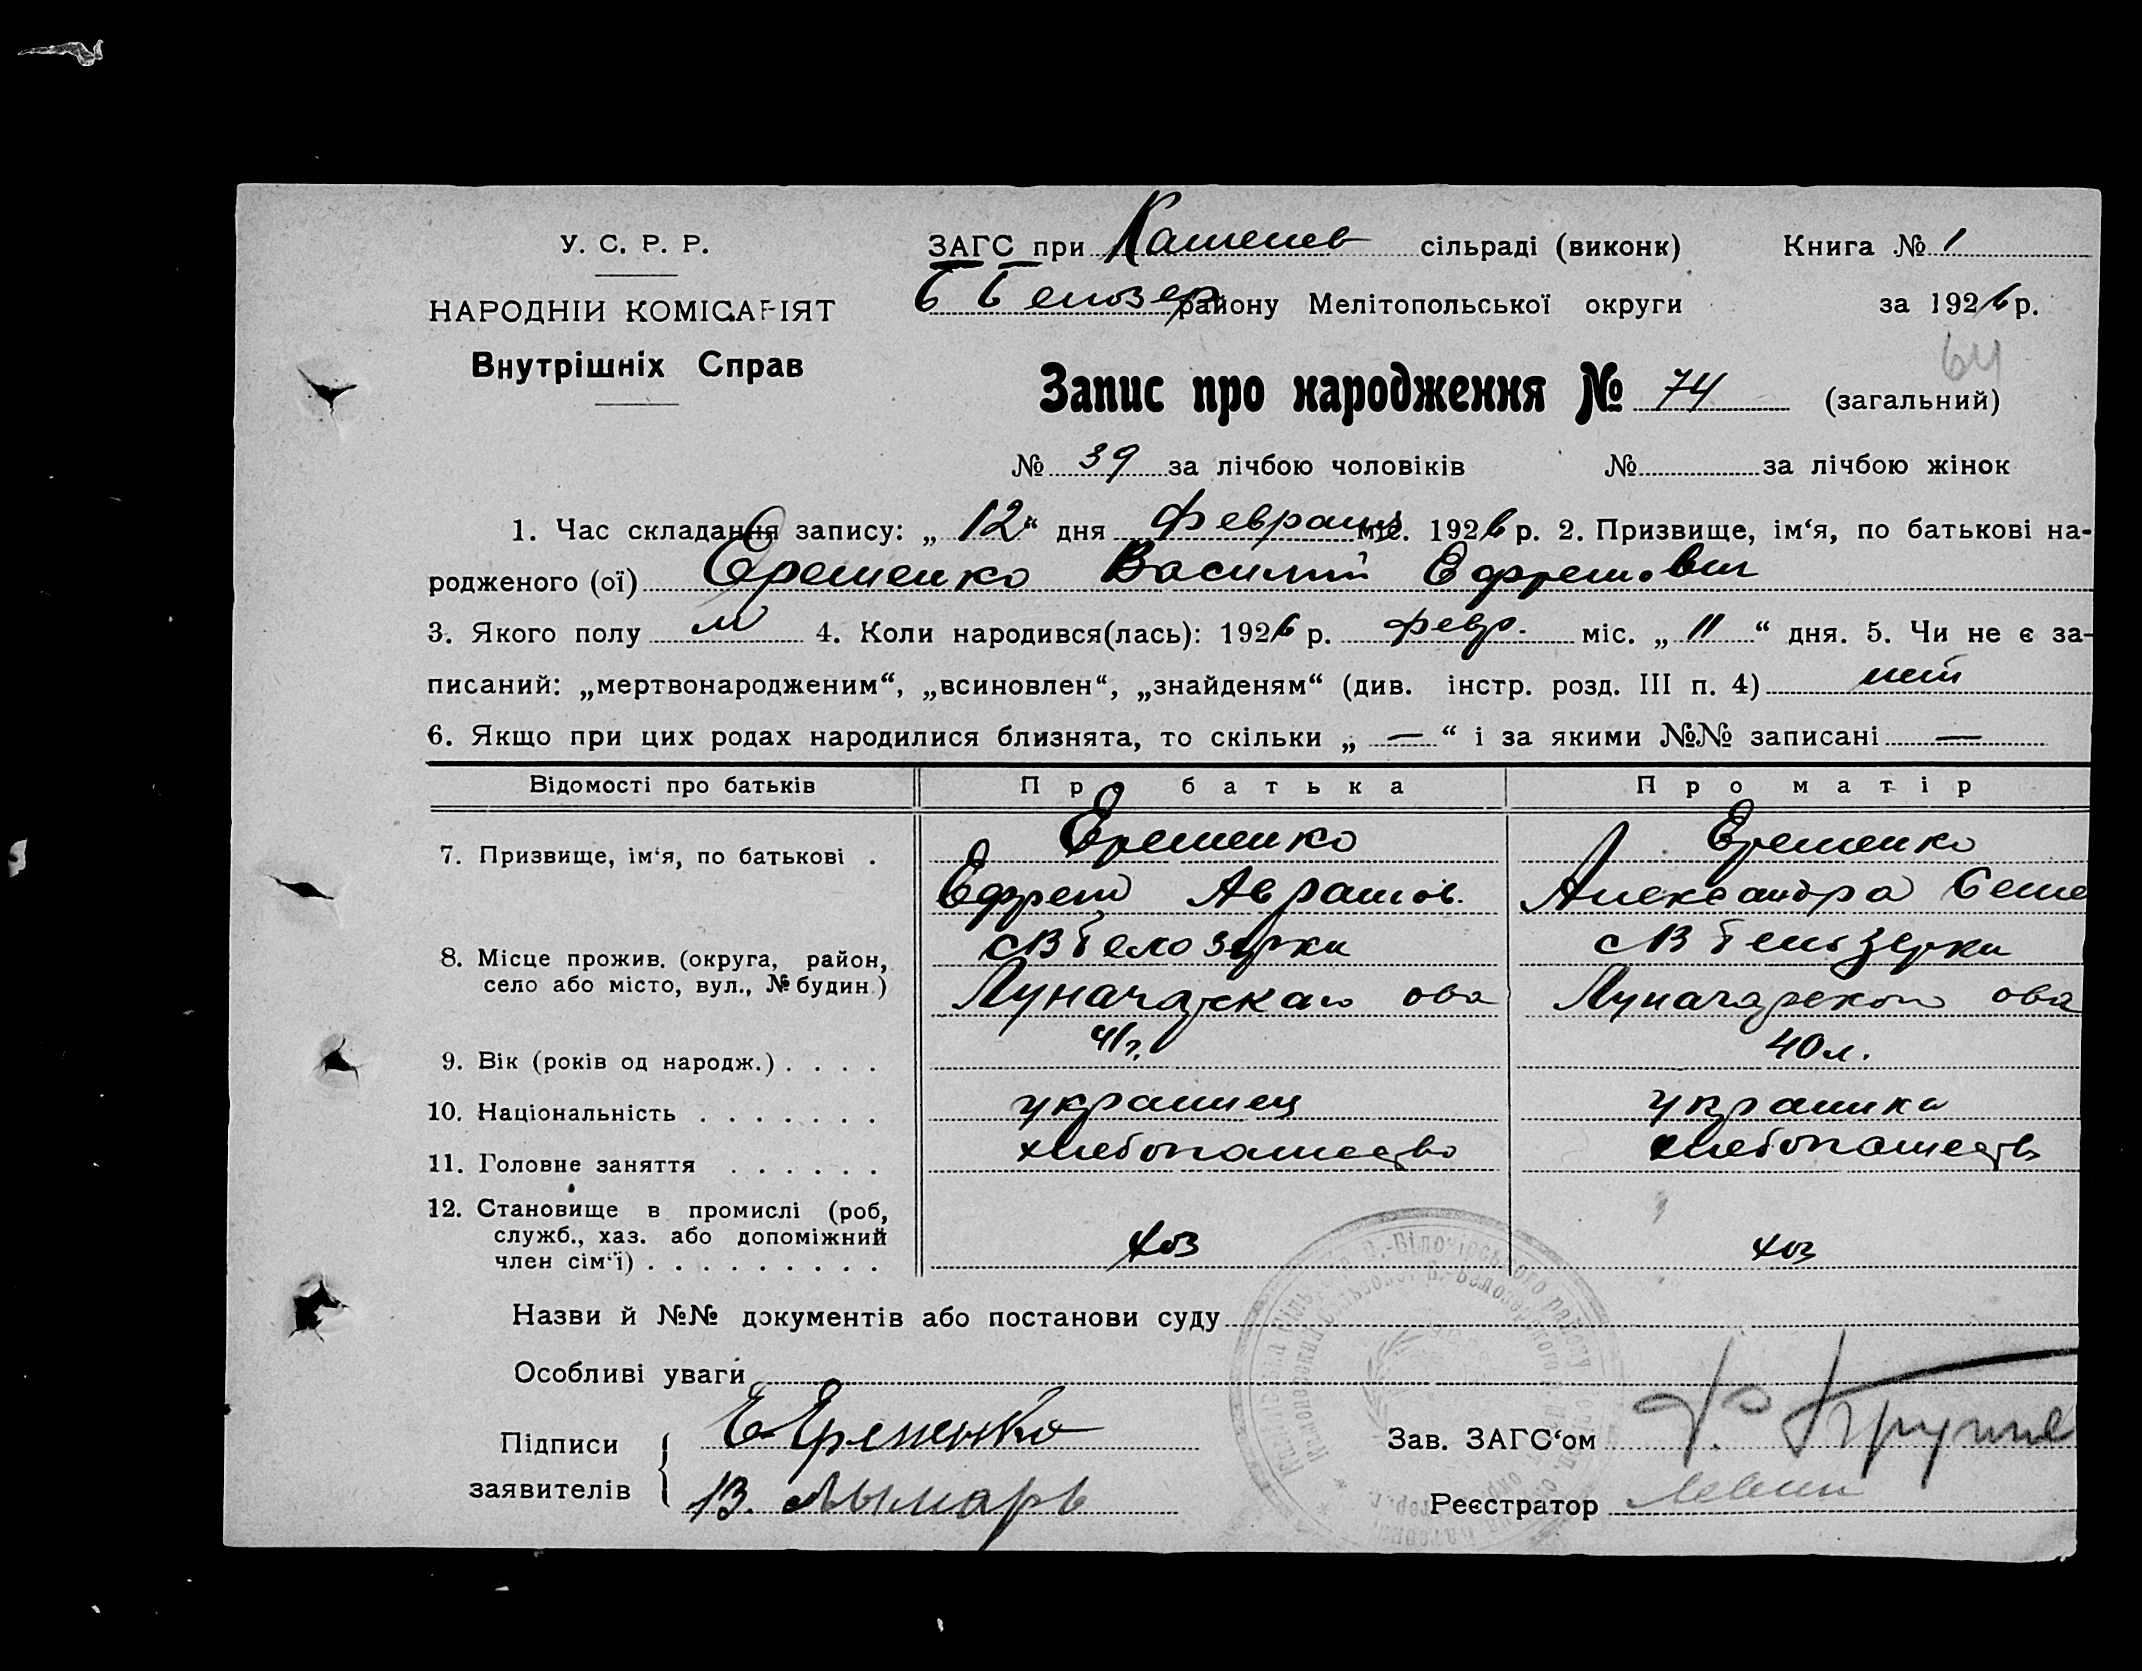 У. С. Р. Р.
НАРОДНІЙ КОМІСАРІЯТ
Внутрішніх Справ
ЗАГС при Камелев сільраді (виконк) Книга № 1
Б Белозер району Мелітопольської округи за 1926 р.
64
Запис про народження № 74 (загальний)
№ 39 за лічбою чоловіків № за лічбою жінок
1. Час складання запису: „ 12 “ дня Февраля міс. 1926 р. 2. Призвище, ім‘я, по батькові на-
родженого (ої) Еременко Василий Ефремович
3. Якого полу м 4. Коли народився(лась): 1926 р. февр. міс. „ 11 “ дня. 5. Чи не є за-
писаний: „мертвонародженим“, „всиновлен“, „знайденям“ (див. інстр. розд. III п. 4) нет
6. Якщо при цих родах народилися близнята, то скільки „ — “ і за якими №№ записані —
Відомості про батьків Про батька Про матір
7. Призвище, ім‘я, по батькові . Еременко Еременко
Ефрем Аврамов. Александра Семе
8. Місце прожив. (округа, район, с В Белозерки с В Белозерки
село або місто, вул., № будин.) Луначарскаго ова Луначарского ова
9. Вік (років од народж.) . . . . 41 г. 40 л.
10. Національність . . . . . . . украинец украинка
11. Головне заняття . . . . . . хлебопашество хлебопашеств
12. Становище в промислі (роб,
служб., хаз. або допоміжний хоз хоз
член сім‘ї) . . . . . . . . .
Назви й №№ документів або постанови суду
Особливі уваги
Підписи Е Еременко Зав. ЗАГС‘ом
заявителів В. Лымарь Реєстратор